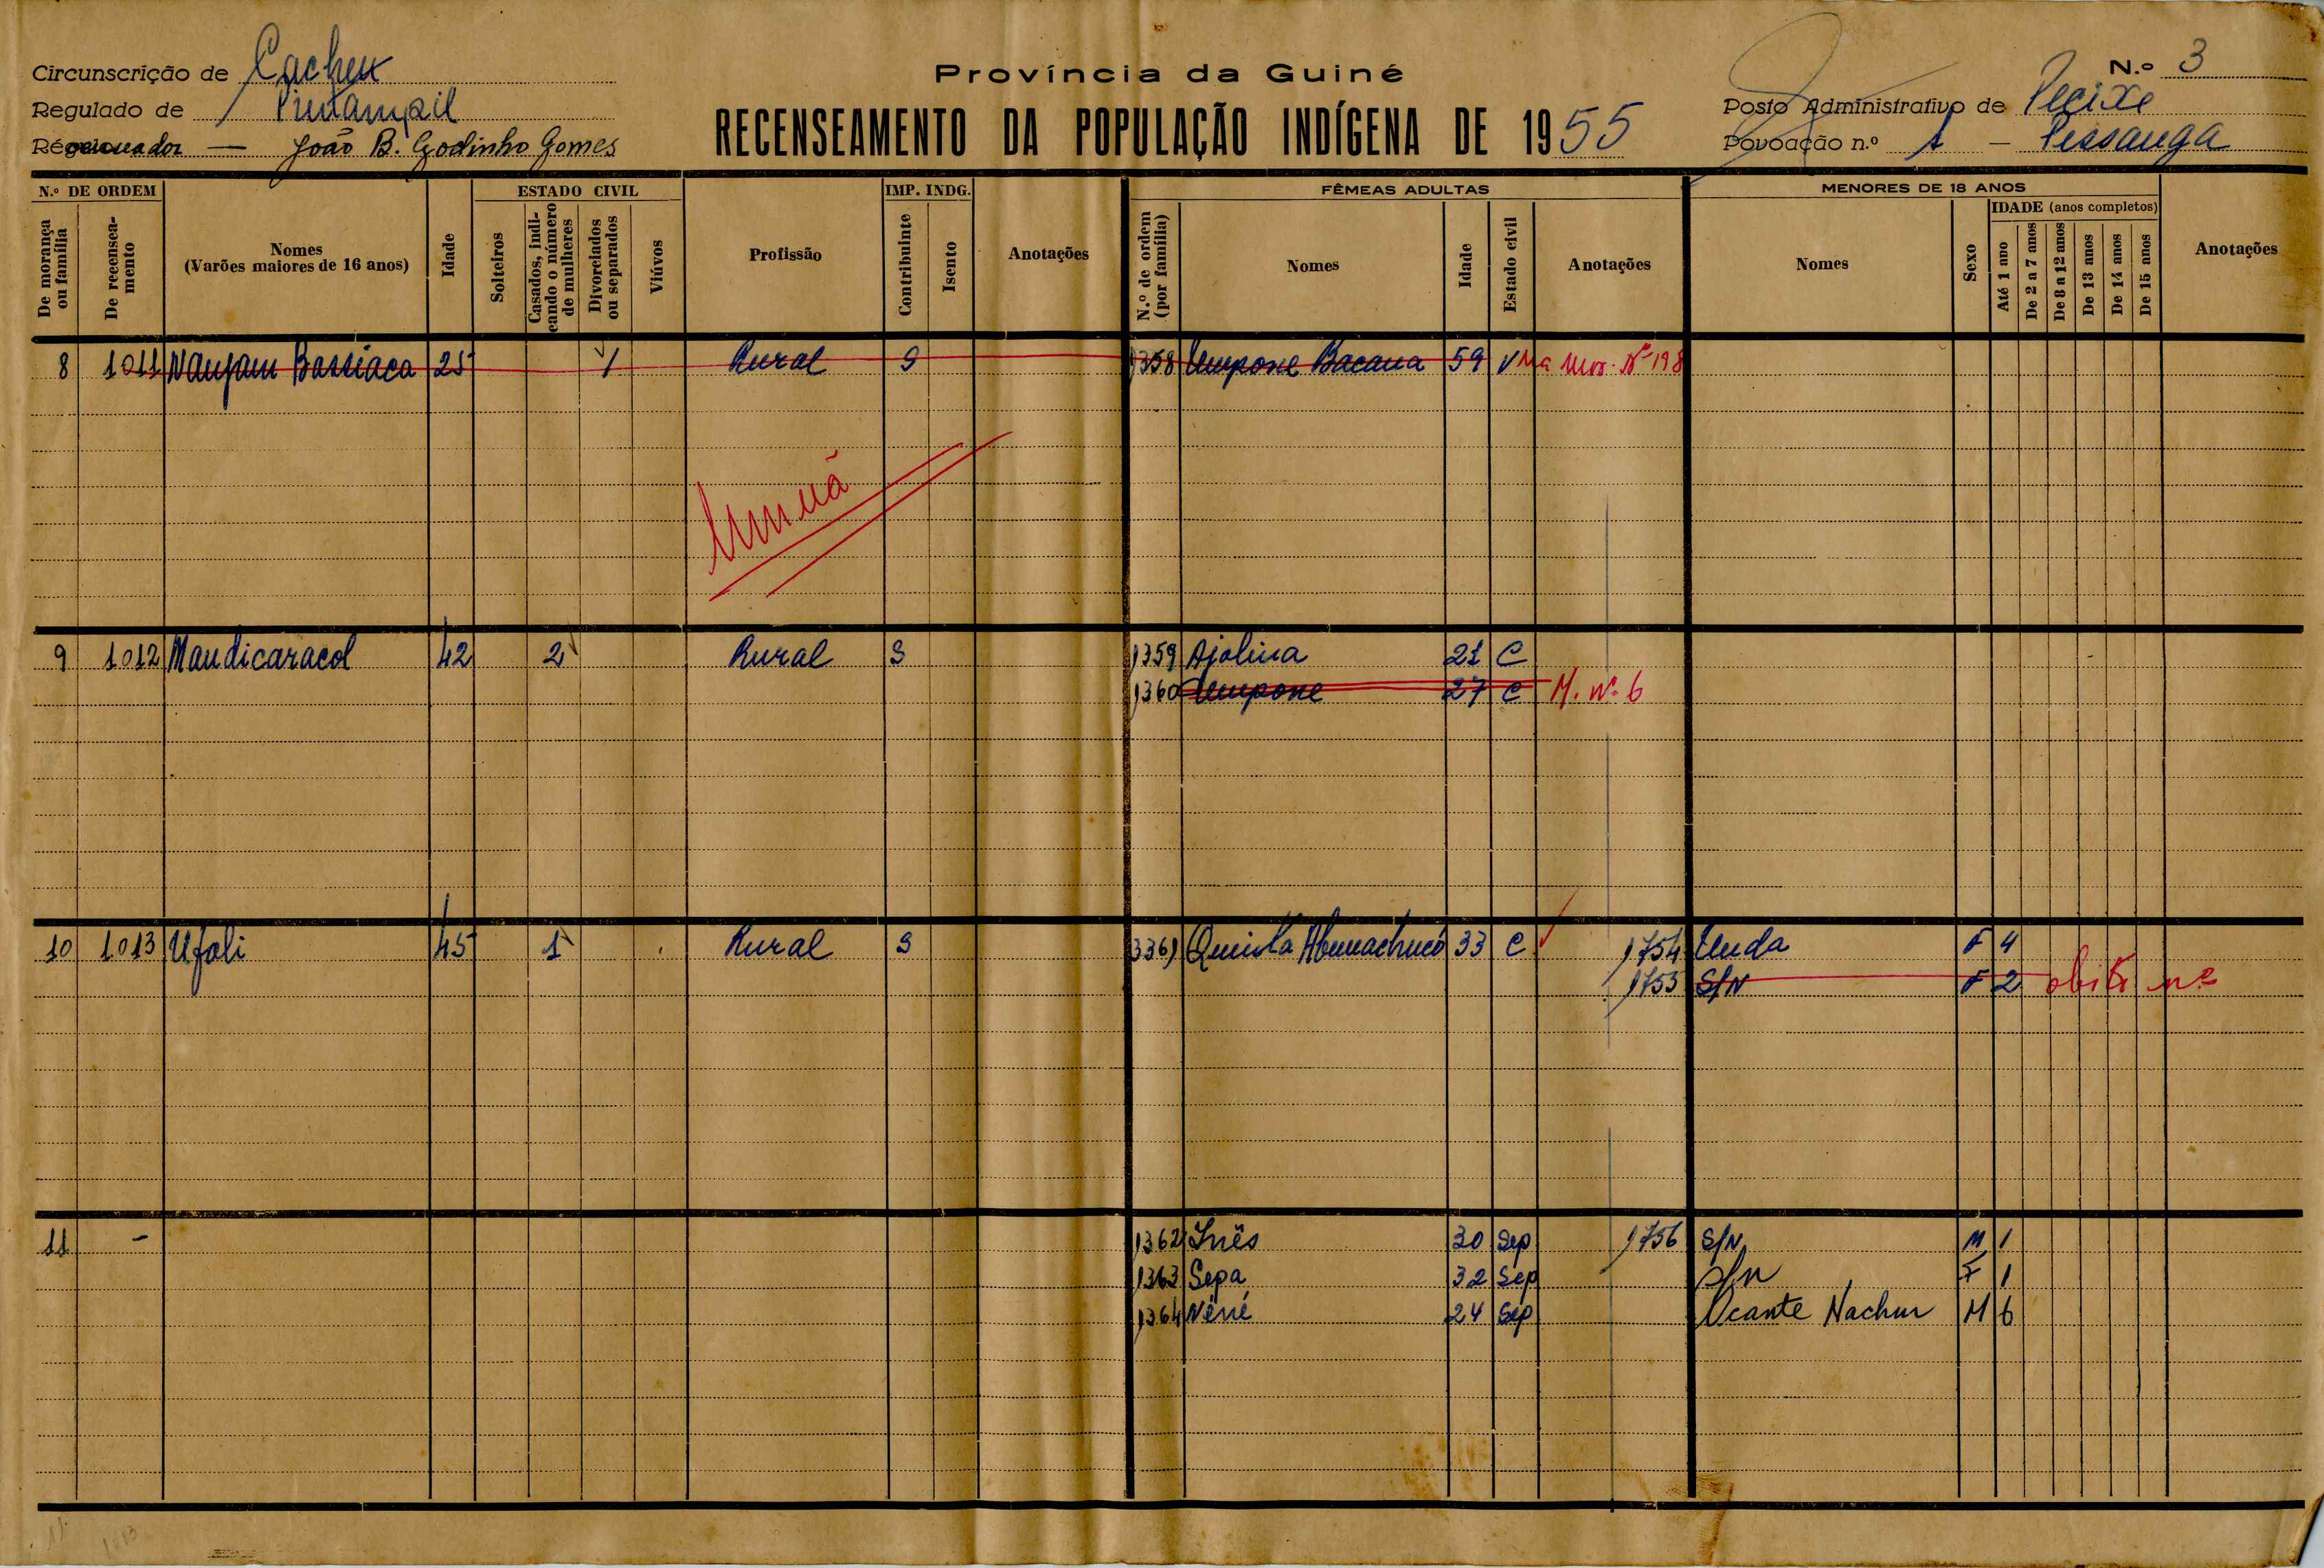 Circunscrição de Cacheu
Província da Guiné
N.º 3
Regulado de Pintampil
RECENSEAMENTO DA POPULAÇÃO INDÍGENA DE 1955
Posto Administrativo de Pecixe
João B. Godinho Gomes
Povoação n.º 1 - Pessanga
N.º DE ORDEM
ESTADO CIVIL
IMP. INDG.
FÊMEAS ADULTAS
MENORES DE 18 ANOS
De morança ou família
De recenseamento
Nomes (Varões maiores de 16 anos)
Idade
Solteiros
Casados, indicando o número de mulheres
Divorciados ou separados
Viúvos
Profissão
Contribuinte
Isento
Anotações
N.º de ordem (por família)
Nomes
Idade
Estado civil
Anotações
Nomes
Sexo
IDADE (anos completos)
Até 1 ano
De 2 a 7 anos
De 8 a 12 anos
De 13 anos
De 14 anos
De 15 anos
Anotações
8 1011 Nanjam Bassiaca 25 1 Rural S 1358 Umpone Bacana 59 V Na Mor. Nº 198
9 1012 Mandicaracol 42 2 Rural S 1359 Ajolina 21 C
1360 Umpone 27 C M. Nº 6
10 1013 Ufoli 45 1 Rural S 1361 33 C 1754 Unda F 4
1755 S/N F 2 obito nº
11 - 1362 Inês 30 Sep 1756 S/N M 1
1363 Sepa 32 Sep S/N F 1
1364 Nêné 24 Sep Ocante Nachur M 6